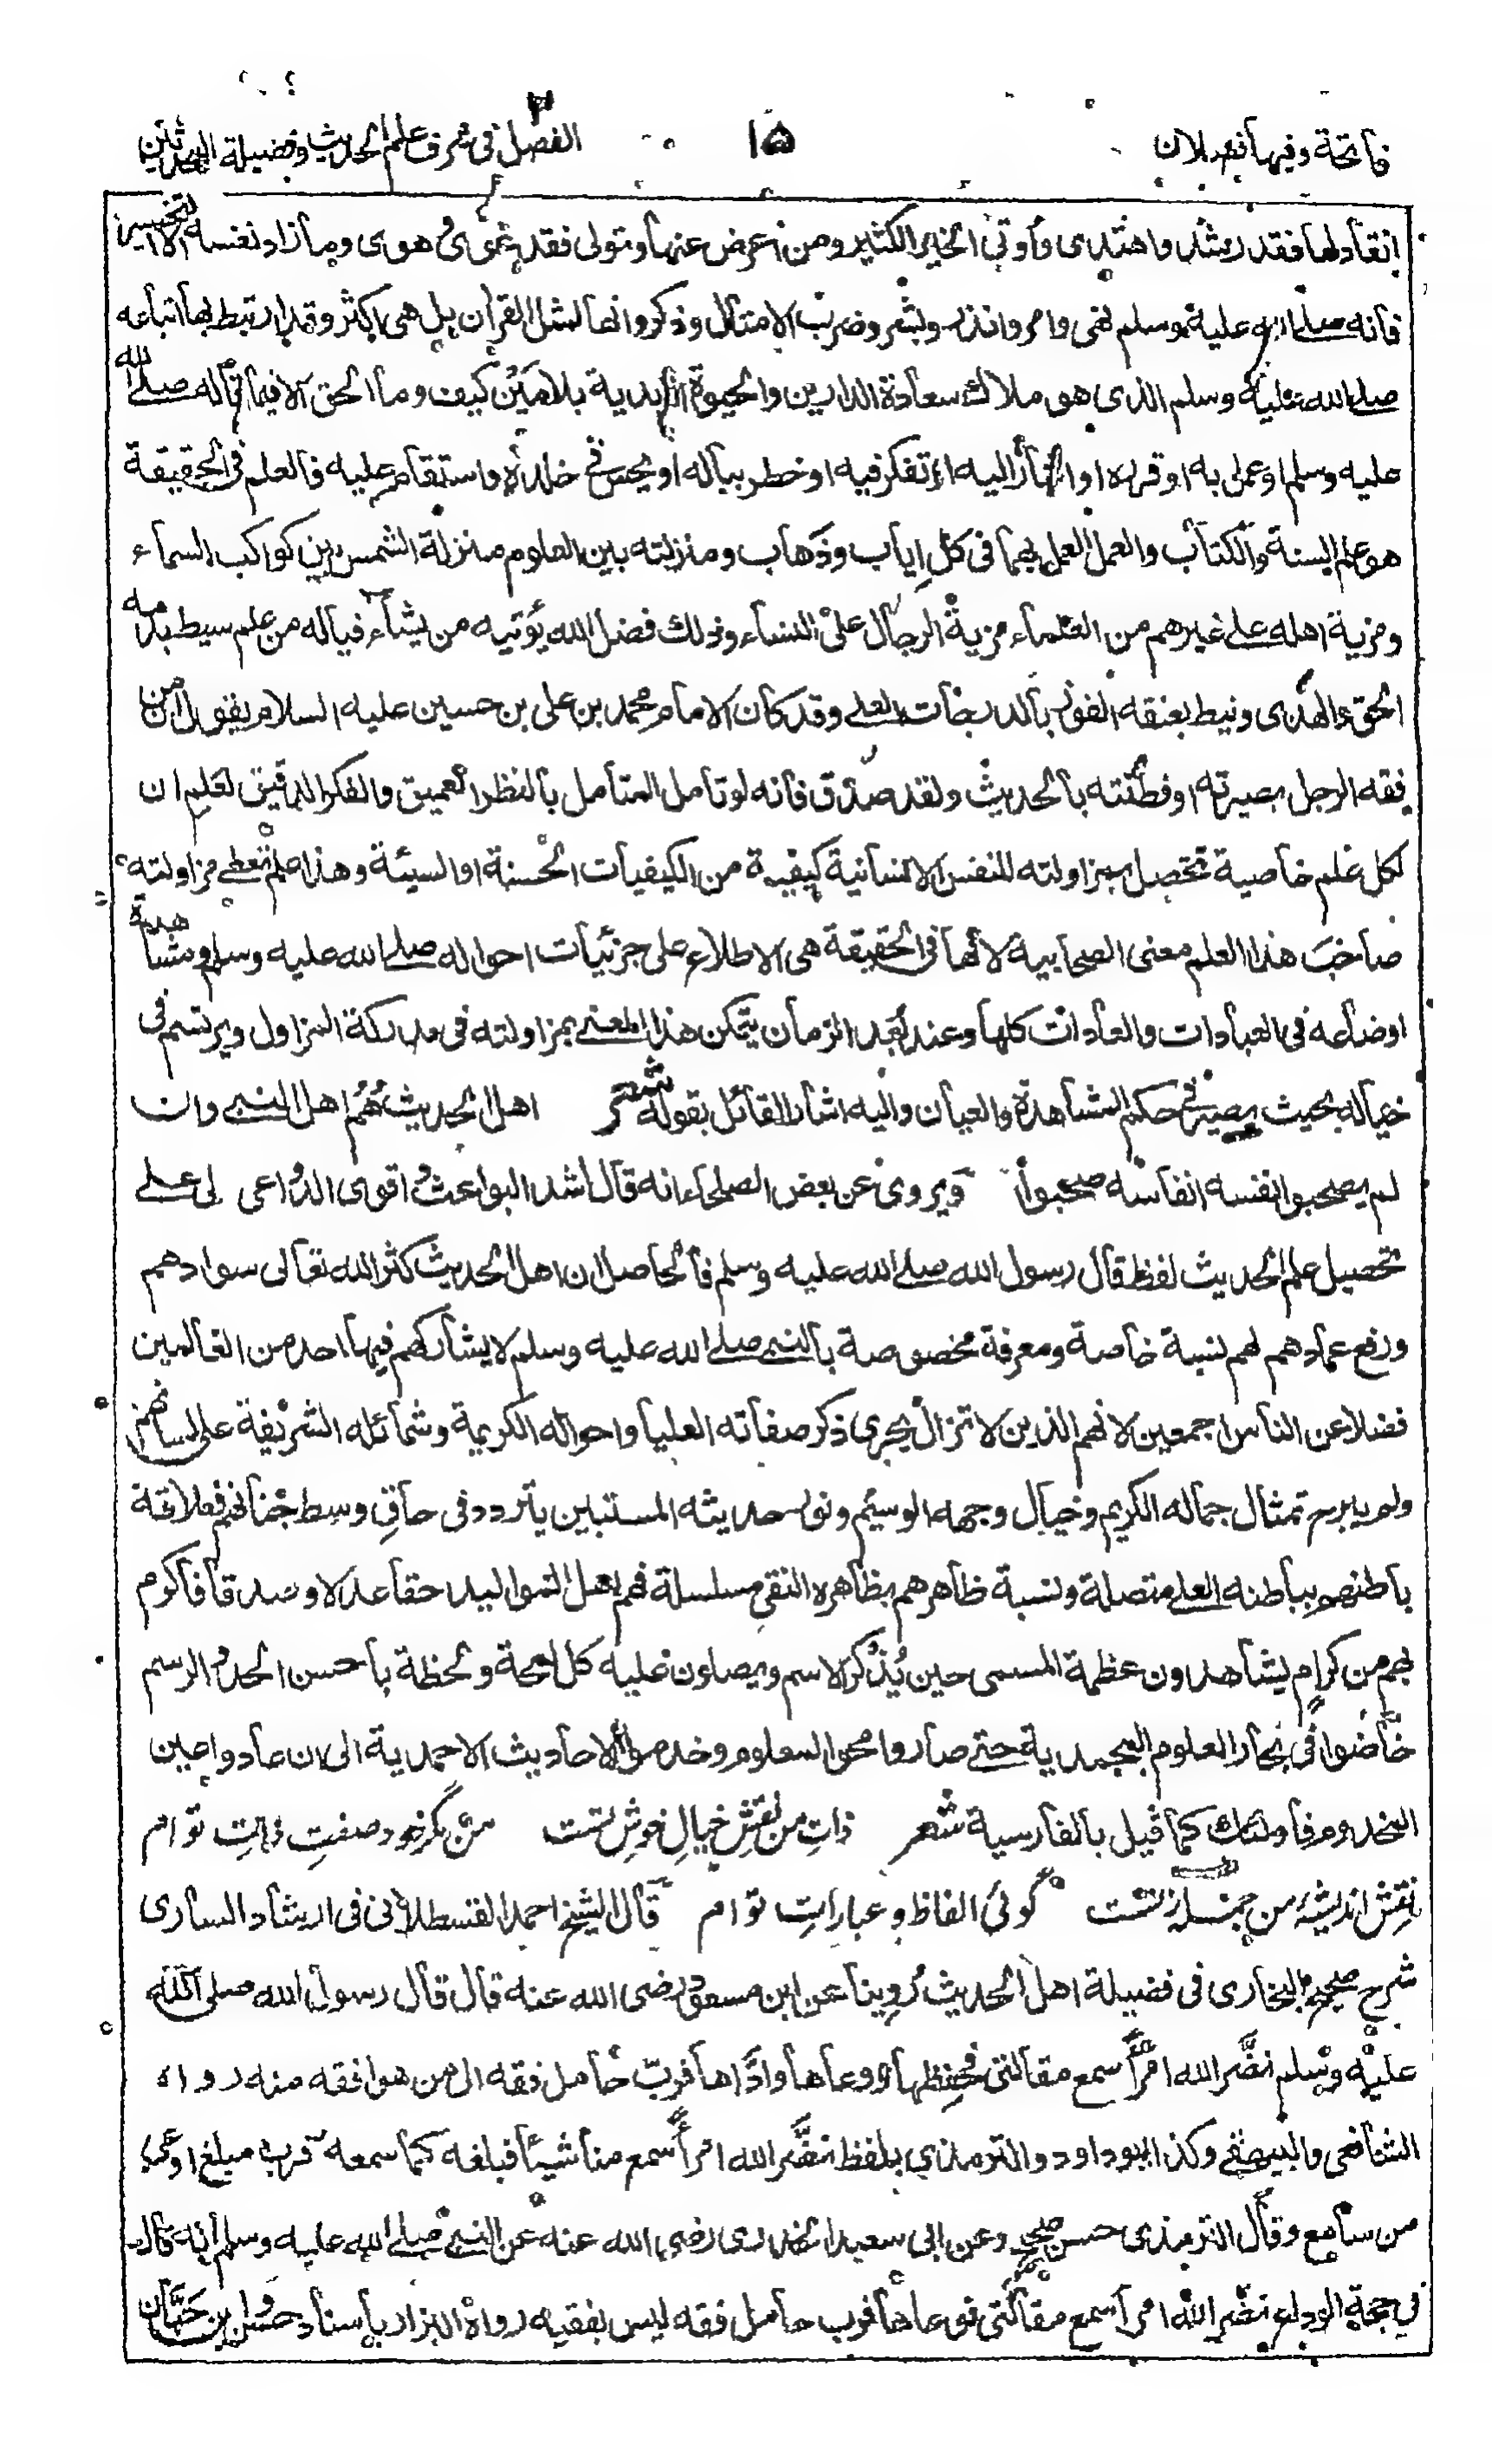 فاتحة وفيها فصلان ١٥ الفصل في شرف علم الحديث وفضيلة المحدثين
انقاد لها فقد رشد واهتدى وأوتي الخير الكثير ومن اعرض عنها وتولى فقد غوى وهوى وما زاد نفسه الا التخسير
فانه صلے الله عليه وسلم نهى وامر وانذر وبشر وضرب الامثال وذكر وانها لمثل القرآن بل هي اكثر وقد ارتبط بها اتباعه
صلے الله عليه وسلم الذي هو ملاك سعادة الدارين والحيوة الابدية بلا مين كيف وما الحق الا فيما قاله صلے الله
عليه وسلم او عمل به او قرره او اشار اليه او تفكر فيه او خطر بباله او هجس في خلده واستقام عليه فالعلم في الحقيقة
هو علم السنة والكتاب والعمل العمل بهما في كل اياب وذهاب ومنزلته بين العلوم منزلة الشمس بين كواكب السماء
ومزية اهله على غيرهم من العلماء مزية الرجال على النساء وذلك فضل الله يؤتيه من يشاء فياله من علم سيط بدمه
الحق والهدى ونيط بعنقه الفوز بالدرجات العلى وقد كان الامام محمد بن على بن حسين عليه السلام يقول ان من
فقه الرجل بصيرته او فطنته بالحديث ولقد صدق فانه لو تامل المتامل بالنظر العميق والفكر الدقيق لعلم ان
لكل علم خاصية تتحصل بمزاولته للنفس الانسانية كيفية من الكيفيات الحسنة او السيئة وهذا علم تعطي مزاولته
صاحب هذا العلم معنى الصحابية لانها في الحقيقة هي الاطلاع على جزئيات احواله صلے الله عليه وسلم ومشاهدة
اوضاعه في العبادات والعادات كلها وعند بعد الزمان يتمكن هذا المعنى بمزاولته في مدركة المزاول ويرتسم في
خياله بحيث يصير في حكم المشاهدة والعيان واليه اشار القائل بقوله شعر اهل الحديث هُمُ اهل النبي وان
لم يصحبوا نفسه انفاسه صحبوا ويروى عن بعض الصلحاء انه قال اشد البواعث واقوى الدواعي لى على
تحصيل علم الحديث لفظ قال رسول الله صلے الله عليه وسلم فالحاصل ان اهل الحديث كثر الله تعالى سوادهم
ورفع عمادهم لهم نسبة خاصة ومعرفة مخصوصة بالنبي صلے الله عليه وسلم لا يشاركهم فيها احد من العالمين
فضلا عن الناس اجمعين لانهم الذين لا تزال يجرى ذكر صفاته العليا واحواله الكريمة وشمائله الشريفة على لسانهم
ولم يبرح تمثال جماله الكريم وخيال وجهه الوسيم ونور حديثه المستبين يتردد في حاق وسط جنانهم فعلاقة
باطنهم بباطنه العلي متصلة ونسبة ظاهرهم بظاهره النقي مسلسلة فهم اهل المواليد حقا عدلا وصدقا فاكرم
بهم من كرام يشاهدون عظمة المسمى حين يُذكر الاسم ويصلون عليه كل لمحة ولحظة باحسن الحد والرسم
خاضوا في بحار العلوم المحمدية حتى صاروا محو المعلوم وخدموا الاحاديث الاحمدية الى ان عادوا عين
المخدوم فاولئك كما قيل بالفارسية شعر ذاتِ من نقشِ خيالِ خوشِ تست من مگر خود صفتِ ذاتِ توام
نقشِ انديشۂ من جمله ز تست گوئى الفاظ و عباراتِ توام قال الشيخ احمد القسطلانى فى ارشاد السارى
شرح صحيح البخارى فى فضيلة اهل الحديث رُوينا عن ابن مسعود رضى الله عنه قال قال رسول الله صلى الله
عليه وسلم نضَّر الله امرأً سمع مقالتى فحفظها ووعاها وادَّاها فربّ حامل فقه الى من هو افقه منه رواه
الشافعى والبيهقى وكذا ابوداود والترمذي بلفظ نضَّر الله امرأً سمع منا شيئا فبلغه كما سمعه فرب مبلغ اوعى
من سامع وقال الترمذى حسن صحيح وعن ابى سعيد الخدرى رضى الله عنه عن النبي صلے الله عليه وسلم انه قال
في حجة الوداع نضر الله امرأ سمع مقالتى فوعاها فرب حامل فقه ليس بفقيه رواه البزار باسناد حسن وابن حبان